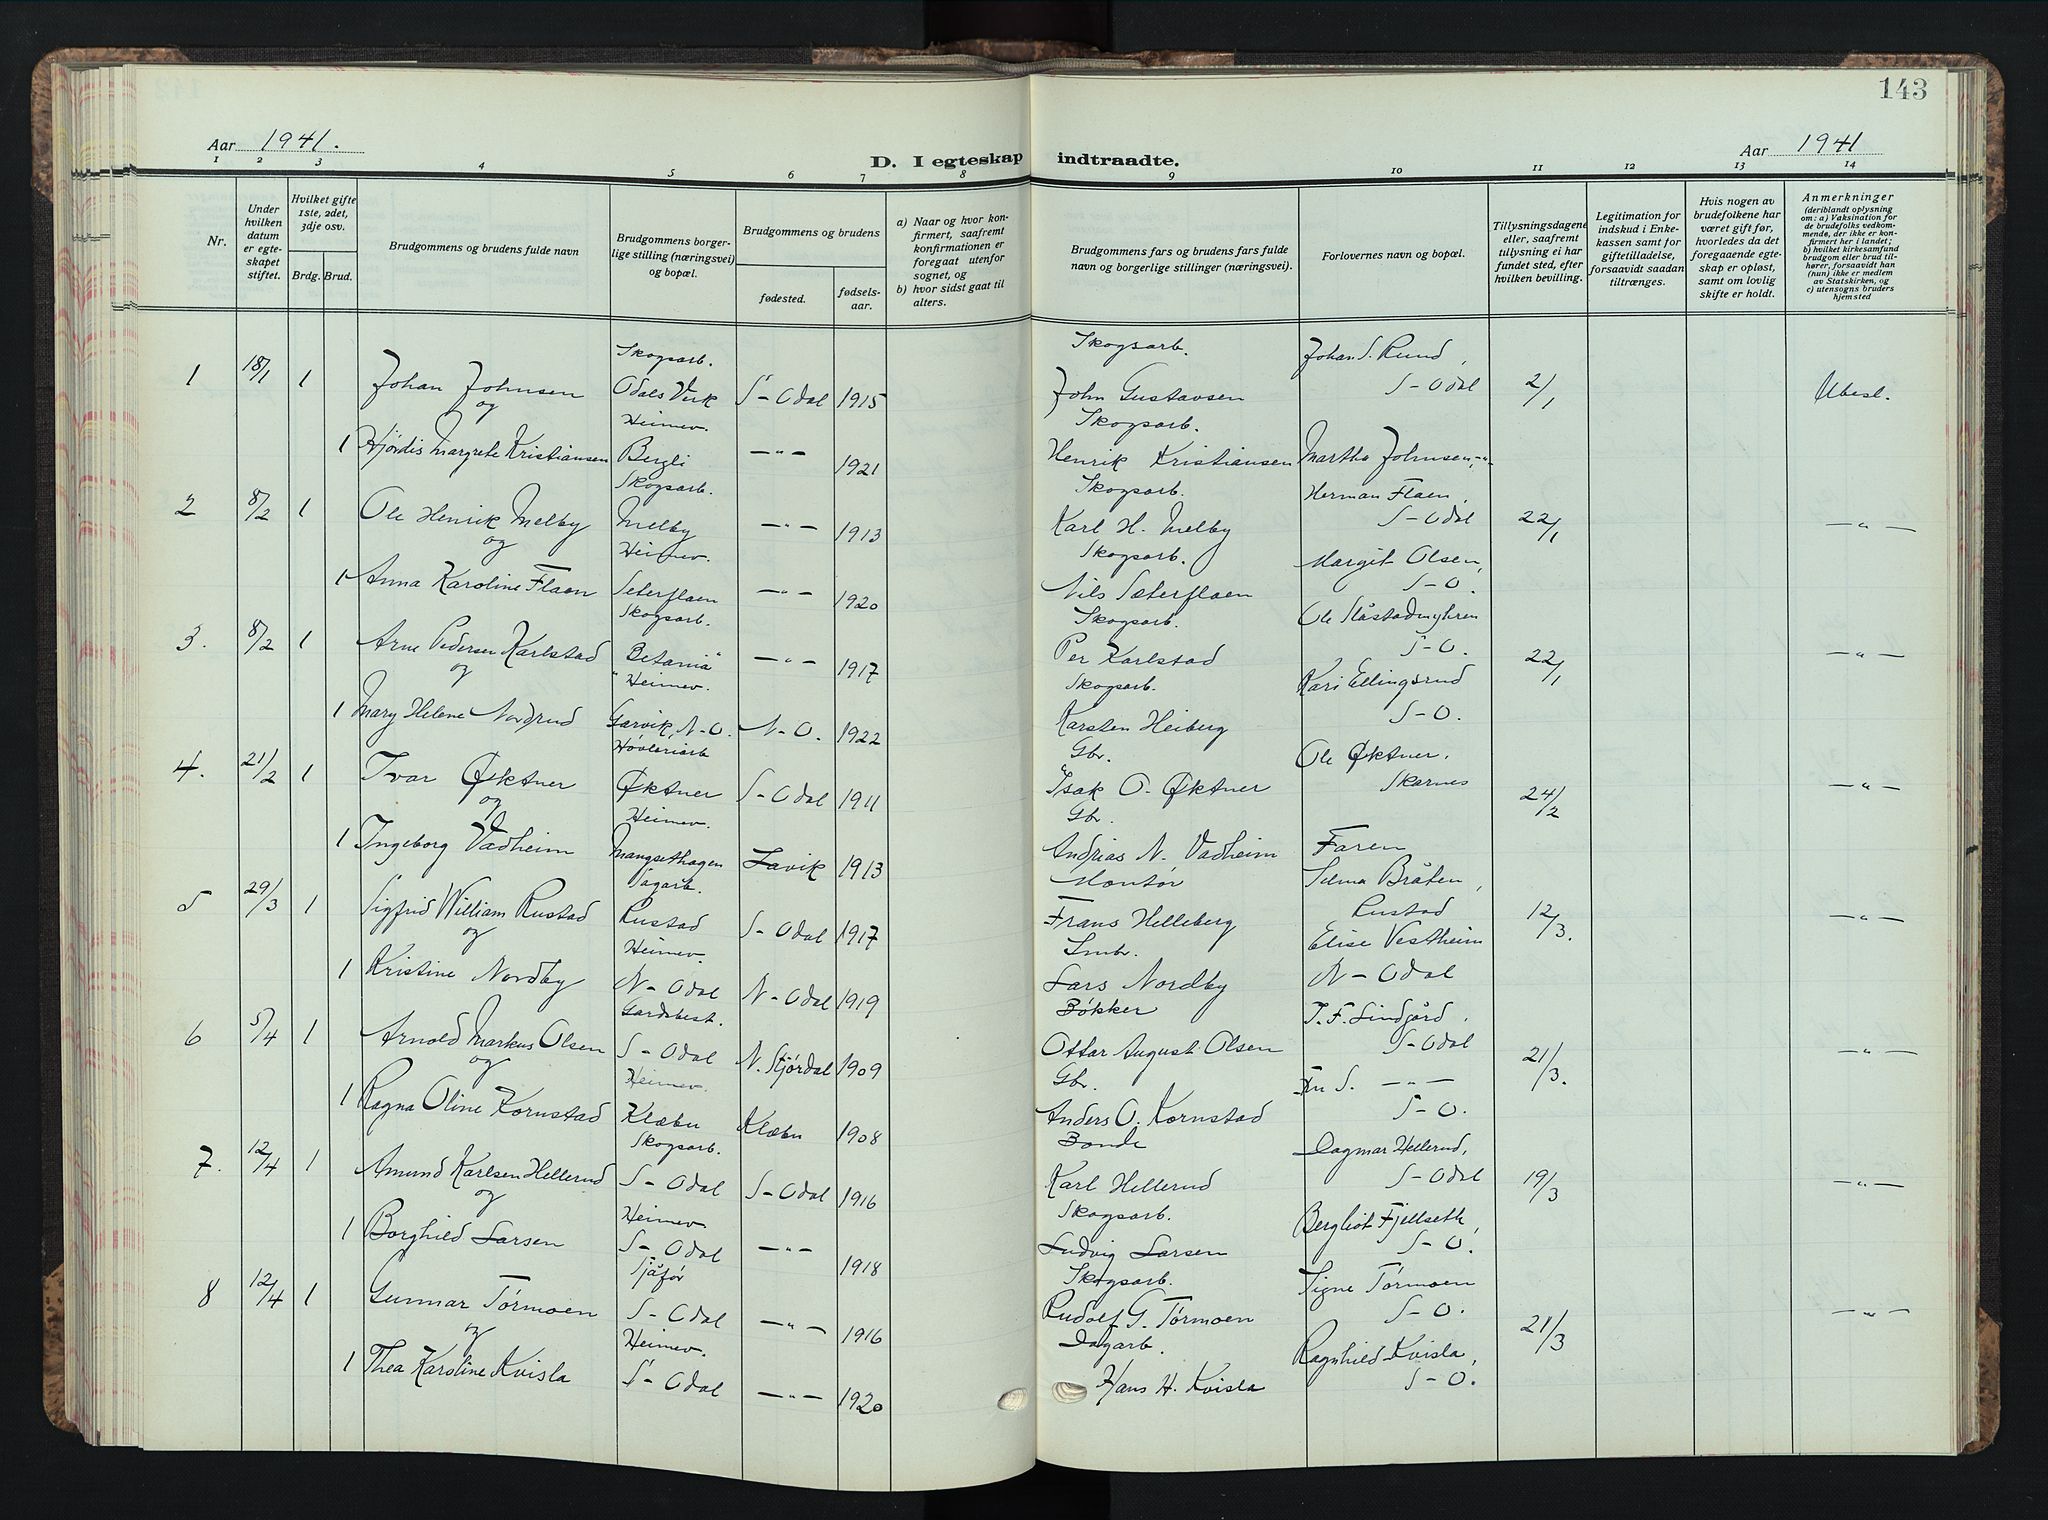 143
Aar 1941.
D. I egteskap indtraadte.
Aar 1941
1 2 3 4 5 6 7 8 9 10 11 12 13 14
Nr.
Under hvilken datum er egteskapet stiftet.
Hvilket gifte 1ste, 2det, 3dje osv.
Brdg. Brud.
Brudgommens og brudens fulde navn
Brudgommens borgerlige stilling (næringsvei) og bopæl.
Brudgommens og brudens
fødested.
fødselsaar.
a) Naar og hvor konfirmert, saafremt konfirmationen er foregaat utenfor sognet, og
b) hvor sidst gaat til alters.
Brudgommens fars og brudens fars fulde navn og borgerlige stillinger (næringsvei).
Forlovernes navn og bopæl.
Tillysningsdagene eller, saafremt tillysning ei har fundet sted, efter hvilken bevilling.
Legitimation for indskud i Enkekassen samt for giftetilladelse, forsaavidt saadan tiltrænges.
Hvis nogen av brudefolkene har været gift før, hvorledes da det foregaaende egteskap er opløst, samt om lovlig skifte er holdt.
Anmerkninger
(deriblandt oplysning om: a) Vaksination for de brudefolks vedkommende, der ikke er konfirmert her i landet; b) hvilket kirkesamfund brudgom eller brud tilhører, forsaavidt han (hun) ikke er medlem av Statskirken, og c) utensogns bruders hjemsted
Skogsarb. Skogsarb. Johan S. Rund,
1 18/1 1 Johan Johnsen Odals Verk S-Odal 1915 John Gustavsen S-Odal 2/1 Ubesl.
og Heimev. Skogsarb.
1 Hjørdis Margrete Kristiansen Bergli -"- 1921 Henrik Kristiansen Martha Johnsen, -"-
Skogsarb. Skogsarb. Herman Flaen,
2 8/2 1 Ole Henrik Melby Melby -"- 1913 Karl H. Melby S-Odal 22/1 -"-
og Heimev. Skogsarb. Margit Olsen,
1 Anna Karoline Flaen Seterflaen -"- 1920 Nils Sæterflaen S-O.
Skogsarb. Skogsarb. Ole Slåstadmyhren
3. 8/2 1 Arne Pedersen Karlstad "Betania" -"- 1917 Per Karlstad S-O. 22/1 -"-
og Heimev. Skogsarb. Kari Ellingsrud
1 Mary Helene Nordrud Garvik, N-O. N-O. 1922 Karsten Heiberg S-O.
Høvleriarb Gbr. Ole Øktner,
4. 21/2 1 Ivar Øktner Øktner S-Odal 1911 Isak O. Øktner Skarnes 24/2 -"-
og Heimev. Gbr.
1 Ingeborg Vadheim Mangsethagen Lavik 1913 Andrias N. Vadheim Faren
Sagarb. Montør Selma Bråten,
5 29/3 1 Sigfrid William Rustad Rustad S-Odal 1917 Frans Helleberg Rustad 12/3. -"-
og Heimev. Smbr. Elise Vestheim
1 Kristine Nordby N-Odal N-Odal 1919 Lars Nordby N-Odal
Gardsbest. Bøkker T. F. Lindgård,
6 5/4 1 Arnold Markus Olsen S-Odal N. Stjørdal 1909 Ottar August Olsen S-Odal 21/3. -"-
og Heimev. Gbr. Fru S. -"-
1 Ragna Oline Kornstad Klæbu Klæbu 1908 Anders O. Kornstad S-O.
Skogsarb. Bonde Dagmar Hellerud,
7. 12/4 1 Amund Karlsen Hellerud S-Odal S-Odal 1916 Karl Hellerud S-Odal 19/3 -"-
og Heimev. Skogsarb. Bergliot Fjellseth,
1 Borghild Larsen S-Odal -"- 1918 Ludvig Larsen S-O.
Sjåfør Skogsarb. Signe Tørmoen
8 12/4 1 Gunnar Tørmoen S-Odal -"- 1916 Rudolf G. Tørmoen S-O. 21/3 -"-
og Heimev. Dagarb. Ragnhild Kvisla,
1 Thea Karoline Kvisla S-Odal -"- 1920 Hans H. Kvisla S-O.